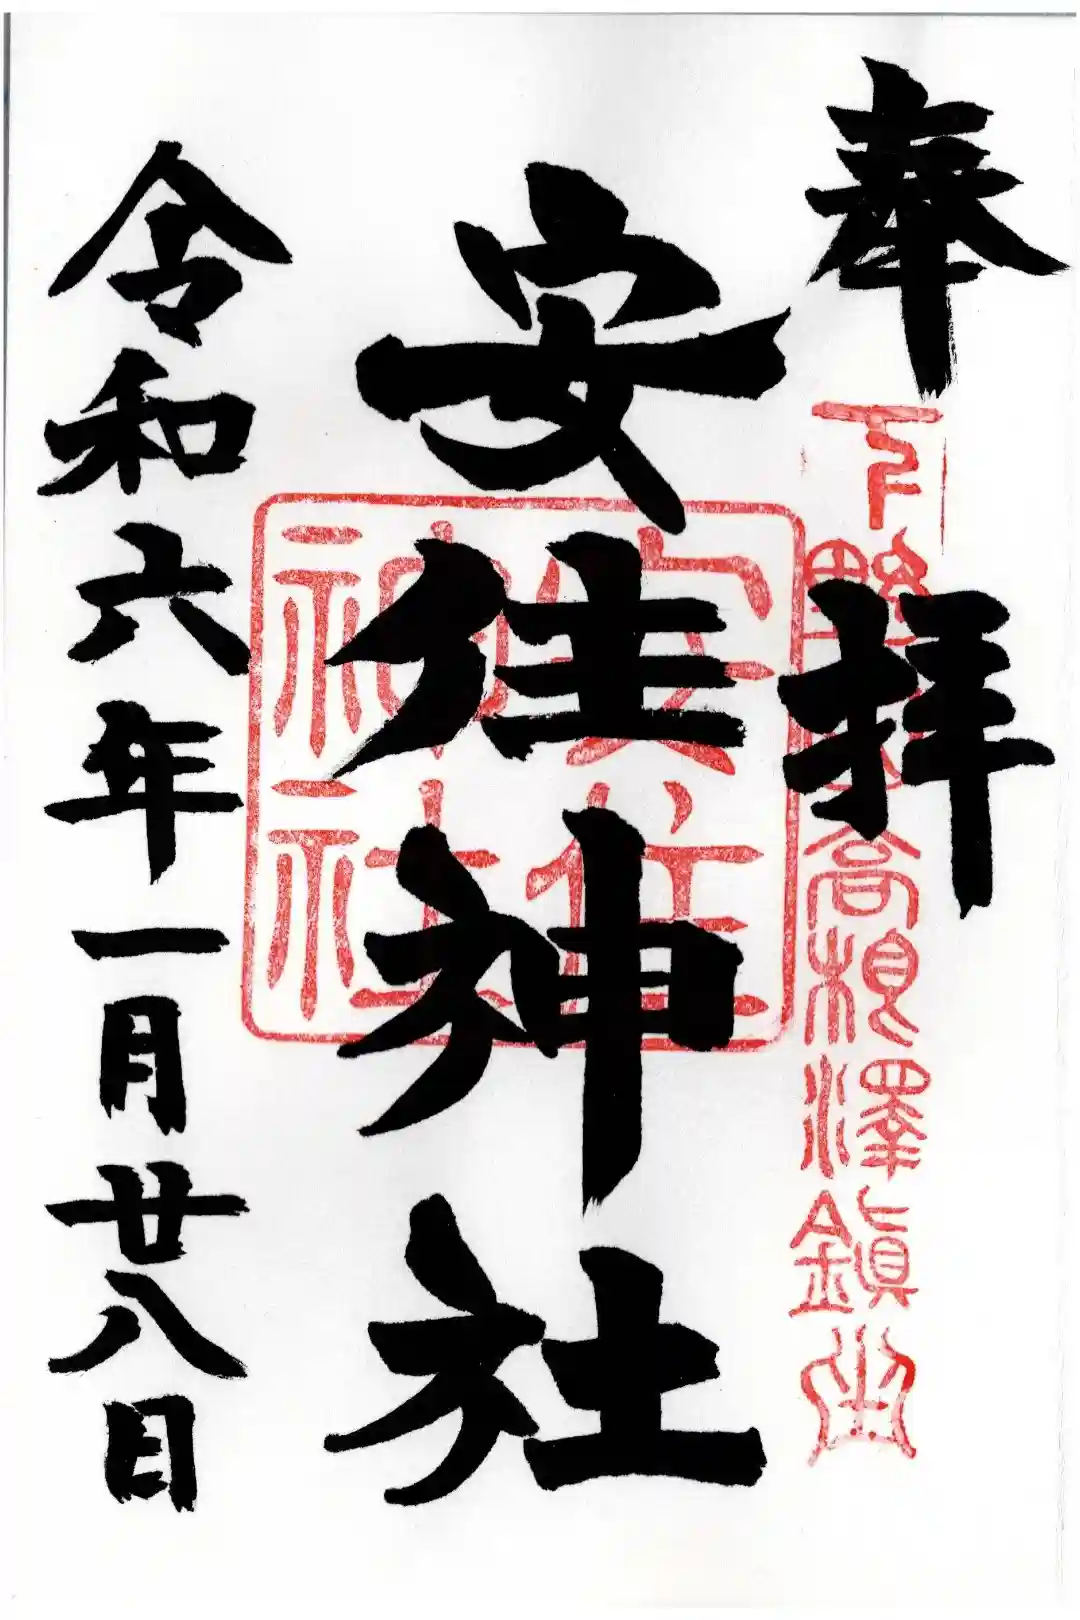 奉拝
下野國高根澤鎭座
安住神社
安住神社
令和六年一月廿八日